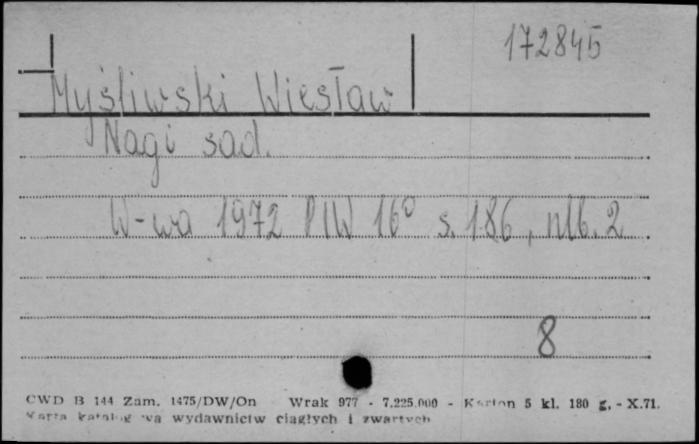 172845
Myśliwski Wiesław
Nagi sad.
W-wa 1972 PIW 16° s. 186, nlb. 2
8
CWD B 144 Zam. 1475/DW/On Wrak 977 - 7.225.000 - Karton 5 kl. 180 g. - X.71.
Karta katalogowa wydawnictw ciągłych i zwartych